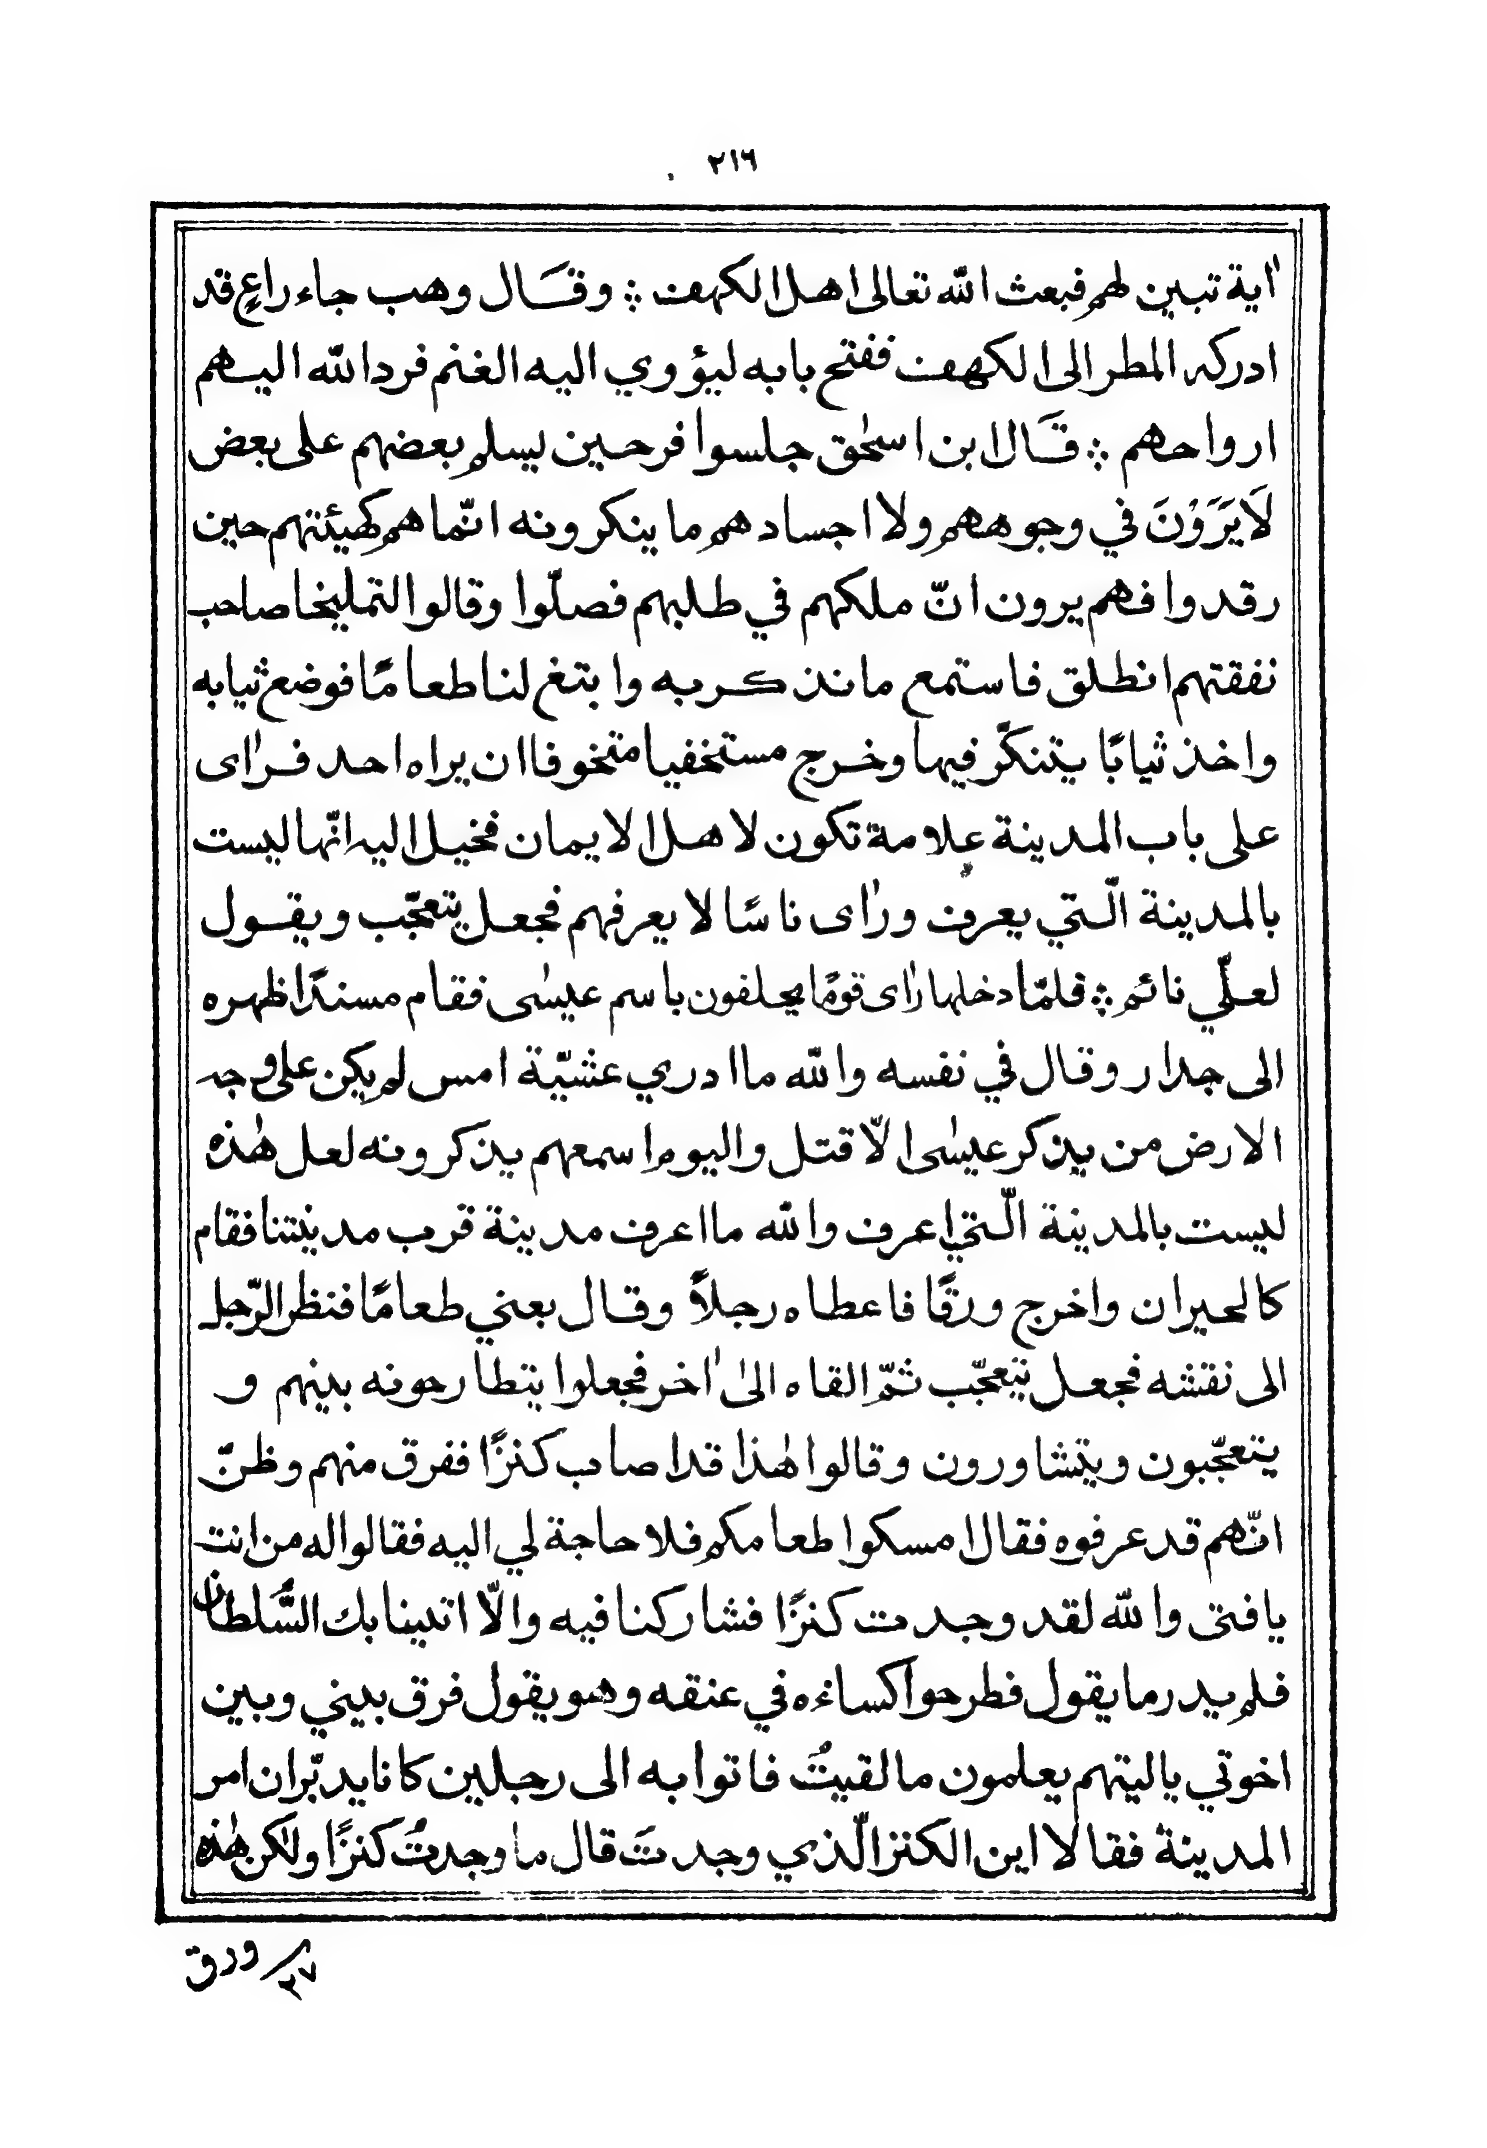 ٢١٦
اٰية تبين لهم فبعث اللّه تعالى اهل الكهف ؞ وقَال وهب جاء راعٍ قد
ادركه المطر الى الكهف ففتح بابه ليؤوي اليه الغنم فرد اللّه اليهم
ارواحهم ؞ قَال ابن اسحٰق جلسوا فرحين ليسلم بعضهم على بعض
لَا يَرَوْنَ في وجوههم ولا اجسادهم ما ينكرونه انّما هم كهيئتهم حين
رقدوا فهم يرون انّ ملكهم في طلبهم فصلّوا وقالوا لتمليخا صاحب
نفقتهم انطلق فاستمع ما نذكر به وابتغ لنا طعامًا فوضع ثيابه
واخذ ثيابًا يتنكّر فيها وخرج مستخفيا متخوفا ان يراه احد فراٰى
على باب المدينة علامة تكون لاهل الايمان فخيل اليه انّها ليست
بالمدينة الّتي يعرف وراٰى ناسًا لا يعرفهم فجعل يتعجّب ويقول
لعلّي نائم ؞ فلمّا دخلها راٰى قومًا يحلفون باسم عيسٰى فقام مسندًا ظهره
الى جدار وقال في نفسه واللّه ما ادري عشيّة امس لم يكن على وجه
الارض من يذكر عيسٰى الّا قتل واليوم اسمعهم يذكرونه لعل هٰذه
ليست بالمدينة الّتي اعرف واللّه ما اعرف مدينة قرب مدينتنا فقام
كالحيران واخرج ورقًا فاعطاه رجلاً وقال بعني طعامًا فنظر الرّجل
الى نقشه فجعل يتعجّب ثمّ القاه الىٰ اٰخر فجعلوا يتطارحونه بينهم و
يتعجّبون ويتشاورون وقالوا هٰذا قد اصاب كنزًا ففرق منهم وظنّ
انّهم قد عرفوه فقال امسكوا طعامكم فلا حاجة لي اليه فقالوا له من انت
يا فتى واللّه لقد وجدت كنزًا فشاركنا فيه والّا اتينا بك السُّلطان
فلم يدر ما يقول فطرحوا كساءه في عنقه وهو يقول فرق بيني وبين
اخوتي يا ليتهم يعلمون ما لقيتُ فاتوا به الى رجلين كانا يدبّران امر
المدينة فقالا اين الكنز الّذي وجدتَ قال ما وجدتُ كنزًا ولٰكن هٰذه
٢٧/ ورق